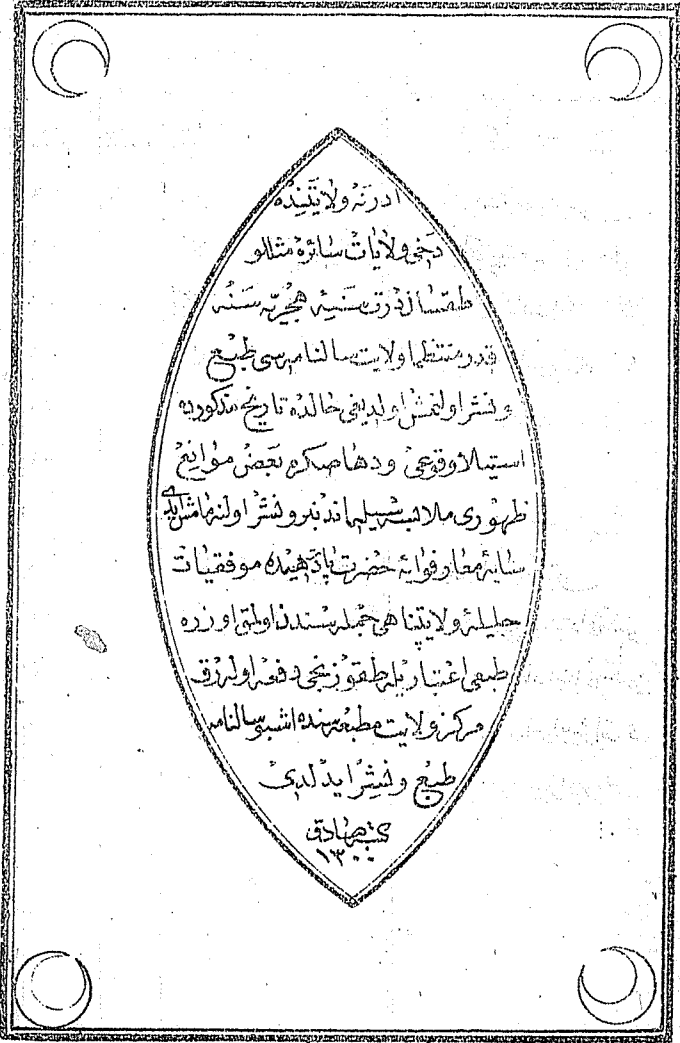 ادرنه ولايتنده
دخی ولايات سائره مثللو
طقسان درت سنۀ هجريه سنه
قدر منتظما ولايت سالنامه‌سی طبع
و نشر اولنمش اولديغی حالده تاريخ مذكورده
استيلا وقوعی و دها صكره بعض موانع
ظهوری ملابسه‌سيله و نشر اولنه‌مامش ايدی
سايۀ معارفوايۀ حضرت پادشاهيده موفقيات
جليلۀ ولايتپناهی جمله‌سندن اولمق اوزره
طبعی اعتباريله طقوزنجی دفعه اوله‌رق
مركز ولايت مطبعه‌سنده اشبو سالنامه
طبع و نشر ايدلدی
كتبه صادق
١٣٠٠